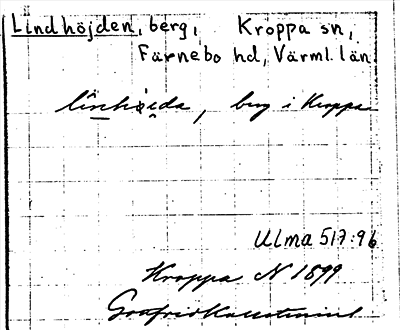 Lindhöjden, berg, Kroppa sn,
Färnebo hd, Värml. län.
berg i Kroppa
Ulma 517:96
Kroppa N 1899